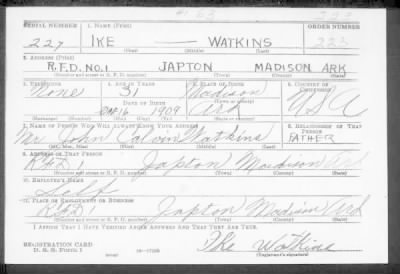 SERIAL NUMBER 1. NAME (Print) ORDER NUMBER
227 IKE — WATKINS
(First) (Middle) (Last)
2. ADDRESS (Print)
R.F.D. No. 1 JAPTON MADISON ARK
(Number and street or R. F. D. number) (Town) (County) (State)
3. TELEPHONE 4. AGE IN YEARS 5. PLACE OF BIRTH 6. COUNTRY OF CITIZENSHIP
None Madison
DATE OF BIRTH
16 1909 Ark
7. NAME OF PERSON WHO WILL ALWAYS KNOW YOUR ADDRESS 8. RELATIONSHIP OF THAT PERSON
Mr John Calvin Watkins FATHER
(Mr., Mrs., Miss) (First) (Middle) (Last)
9. ADDRESS OF THAT PERSON
RFD 1 Japton Madison Ark
(Number and street or R. F. D. number) (Town) (County) (State)
10. EMPLOYER'S NAME
Self
11. PLACE OF EMPLOYMENT OR BUSINESS
RFD 1 Japton Madison Ark
(Number and street or R. F. D. number) (Town) (County) (State)
I AFFIRM THAT I HAVE VERIFIED ABOVE ANSWERS AND THAT THEY ARE TRUE.
REGISTRATION CARD
D. S. S. FORM 1
Ike Watkins
(Registrant's signature)